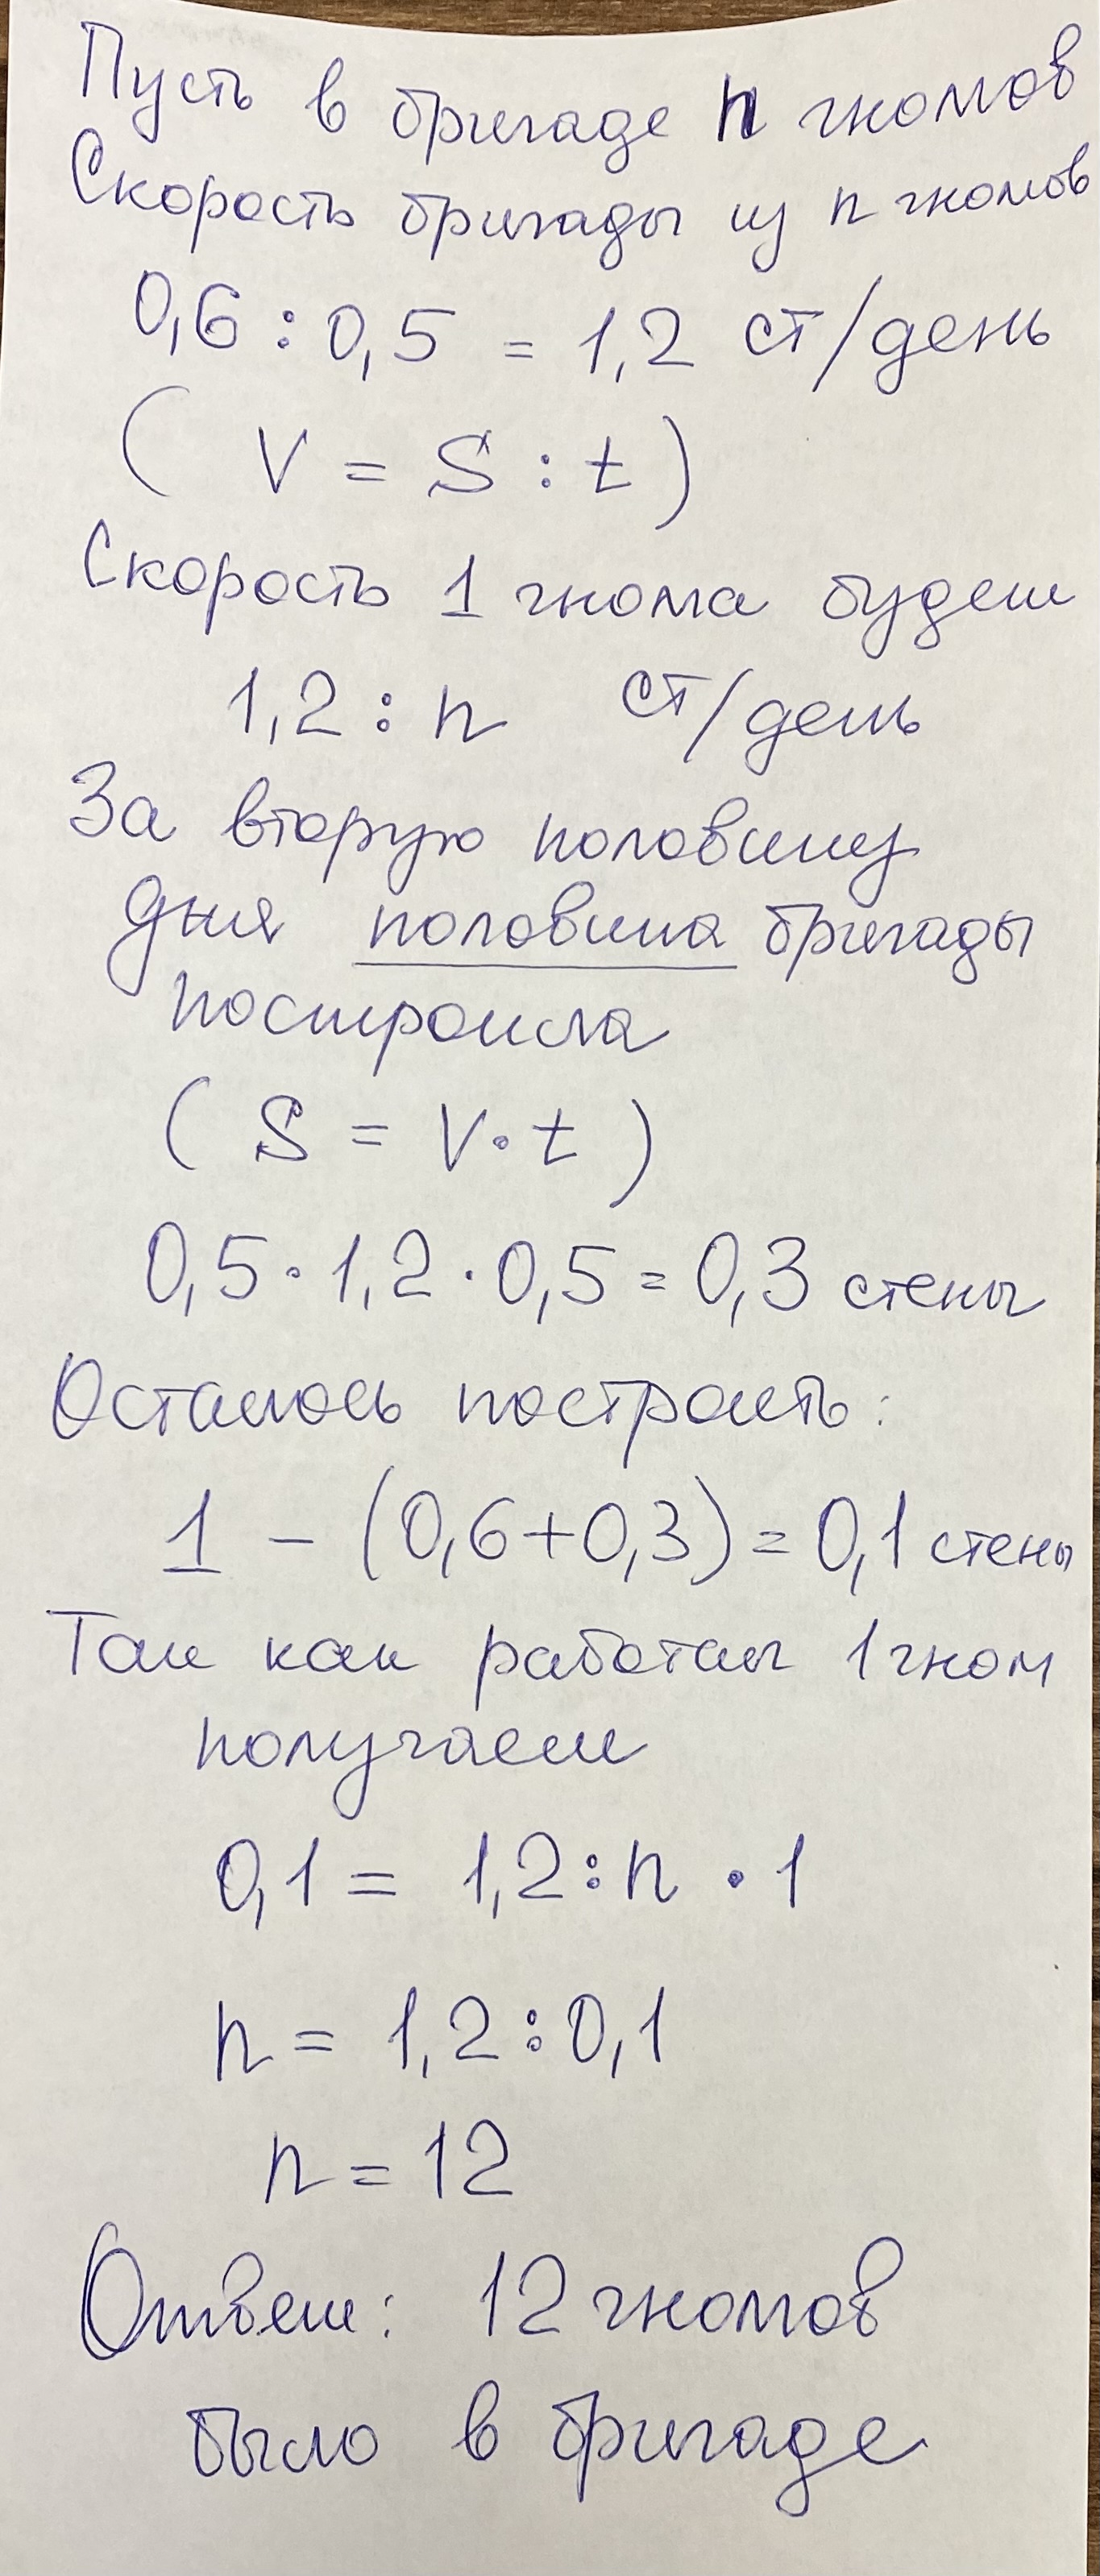 Пусть в бригаде n гномов
Скорость бригады из n гномов
0,6 : 0,5 = 1,2 ст/день
( V = S : t )
Скорость 1 гнома будет
1,2 : n ст/день
За вторую половину
дня половина бригады
построила
( S = V · t )
0,5 · 1,2 · 0,5 = 0,3 стены
Осталось построить:
1 - (0,6+0,3) = 0,1 стены
Так как работал 1 гном
получаем
0,1 = 1,2 : n · 1
n = 1,2 : 0,1
n = 12
Ответ: 12 гномов
было в бригаде